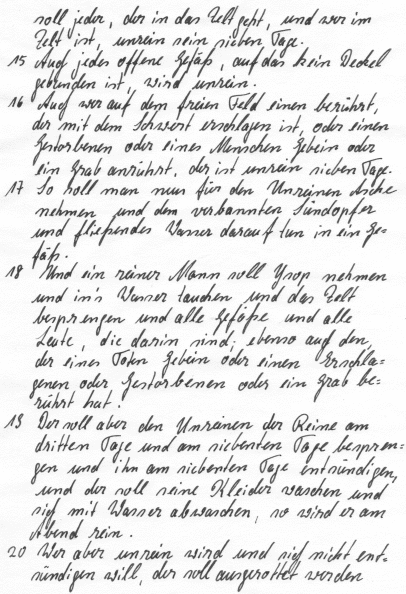 soll jeder, der in das Zelt geht, und wer im
Zelt ist, unrein sein sieben Tage.
15 Auch jedes offene Gefäß, auf das kein Deckel
gebunden ist, wird unrein.
16 Auch wer auf dem freien Feld einen berührt,
der mit dem Schwert erschlagen ist, oder einen
Gestorbenen oder eines Menschen Gebein oder
ein Grab anrührt, der ist unrein sieben Tage.
17 So soll man nun für den Unreinen Asche
nehmen und dem verbrannten Sündopfer
und fließendes Wasser darauf tun in ein Ge-
fäß.
18 Und ein reiner Mann soll Ysop nehmen
und in's Wasser tauchen und das Zelt
besprengen und alle Gefäße und alle
Leute, die darin sind; ebenso auf den,
der eines Toten Gebein oder einen Erschla=
genen oder Gestorbenen oder ein Grab be=
rührt hat.
19 Der soll aber den Unreinen der Reine am
dritten Tage und am siebenten Tage bespren-
gen und ihn am siebenten Tage entsündigen,
und der soll seine Kleider waschen und
sich mit Wasser abwaschen, so wird er am
Abend rein.
20 Wer aber unrein wird und sich nicht ent-
sündigen will, der soll ausgerottet werden